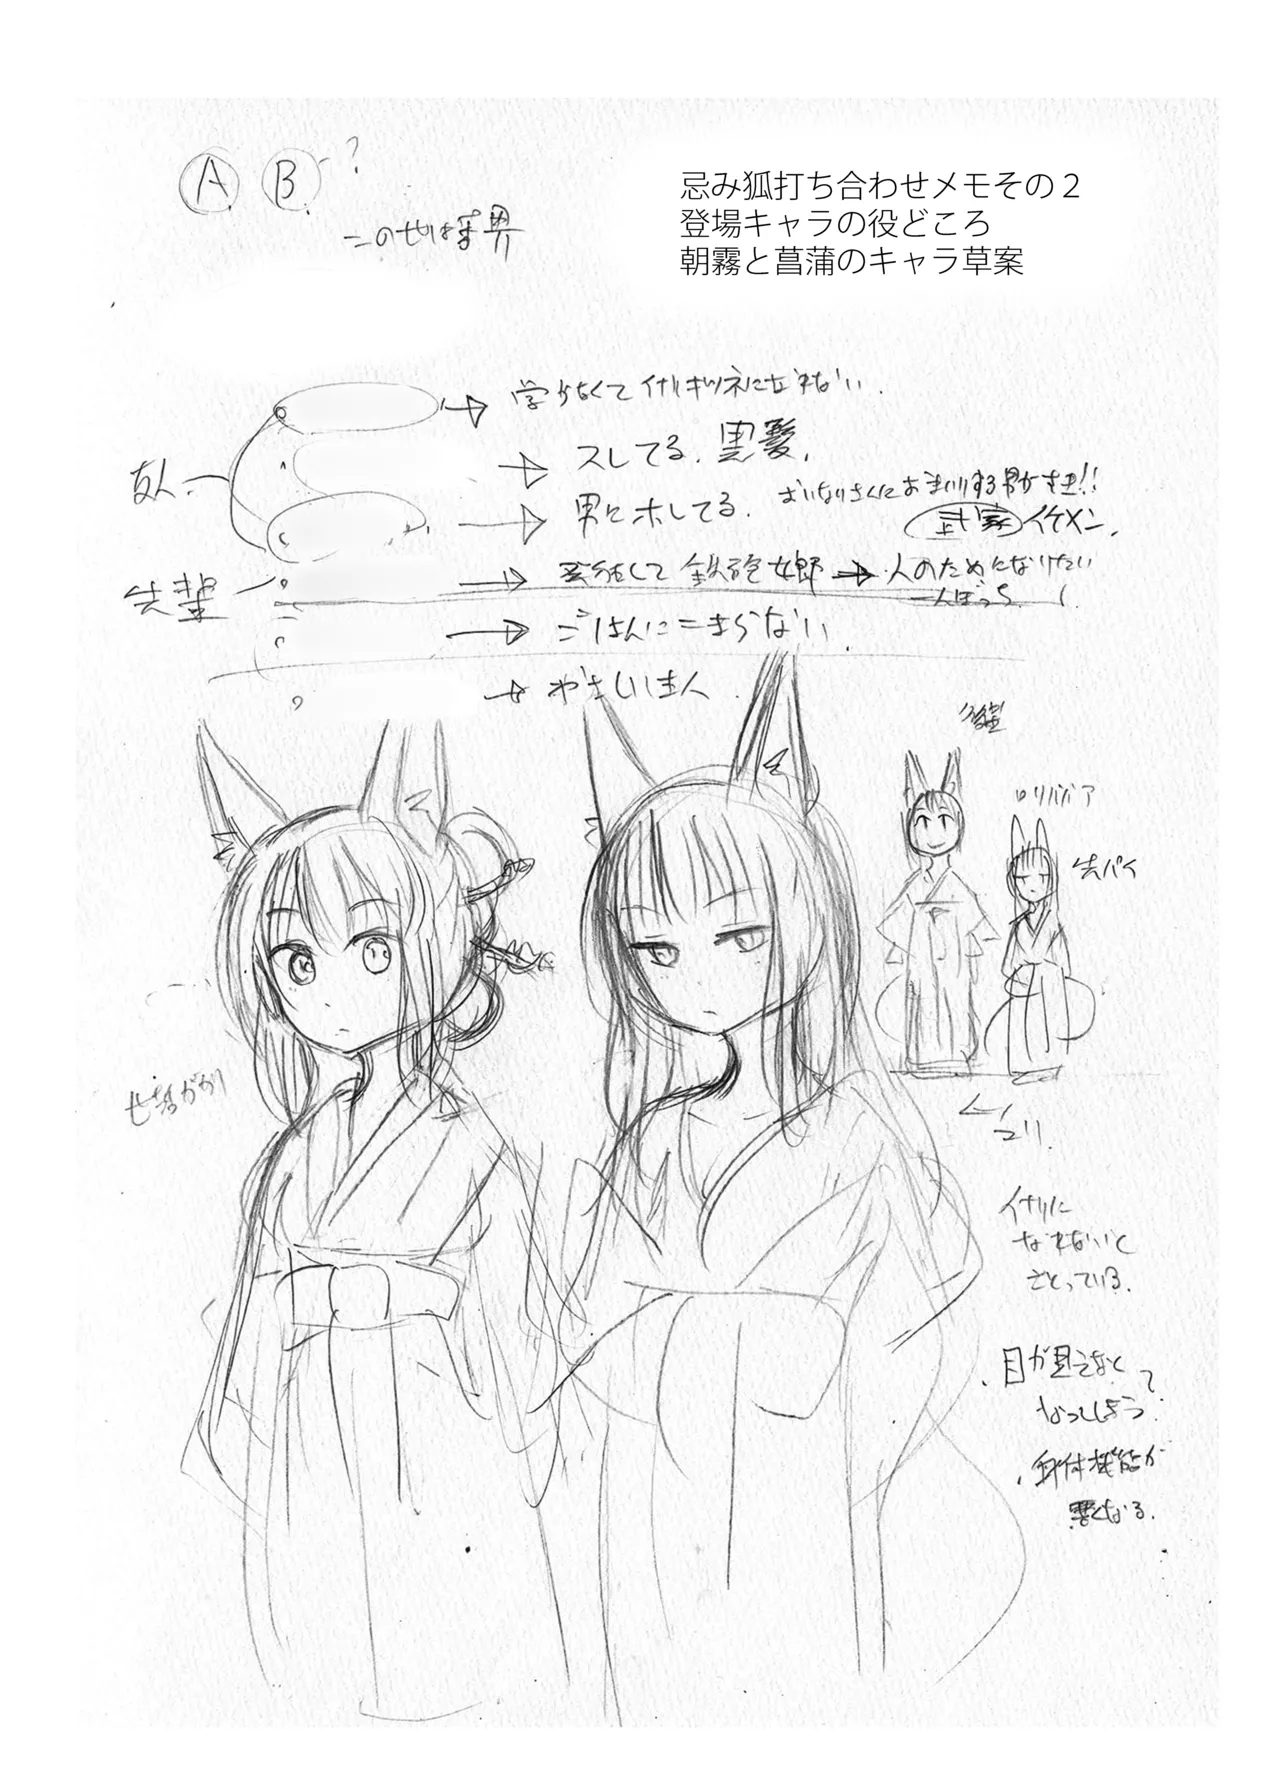 A B ?
忌み狐打ち合わせメモその２
登場キャラの役どころ
朝霧と菖蒲のキャラ草案
学がなくてイナリギツネになれない.
友人
スレてる. 黒髪.
おいなりさんにおまいりする男がすき!!
男にホレてる.
武家 イケメン.
先輩
鉄砲女郎 → 人のためになりたい
一人ぼっち.
ごはんにこまらない.
やさしい主人
後輩
ロリババア
先パイ
世話がかり
イナリに
なれないと
さとっている.
・目が見えなく
なってしまう?
・身体機能が
悪くなる.